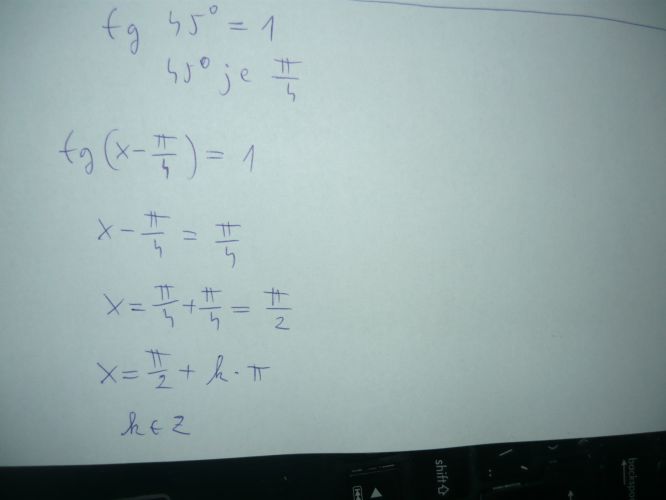 tg 45° = 1
45° je π/4
tg(x - π/4) = 1
x - π/4 = π/4
x = π/4 + π/4 = π/2
x = π/2 + k · π
k ∈ Z
shift
backspa